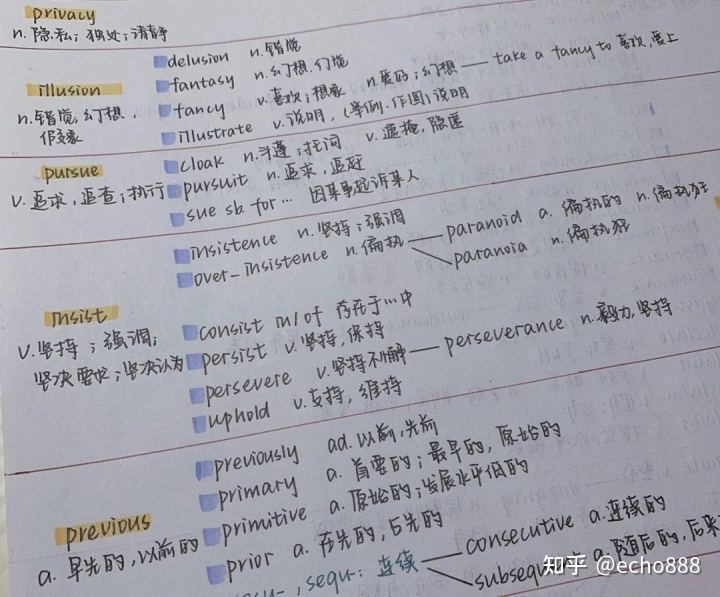 privacy
n. 隐私；独处；清静
delusion n. 错觉
fantasy n. 幻想，幻觉
illusion
fancy v. 喜欢；想象 n. 爱的；幻想 — take a fancy to 喜欢，爱上
n. 错觉，幻想，假象
illustrate v. 说明，(举例、作图)说明
cloak n. 斗篷；托词 v. 遮掩，隐匿
pursue
pursuit n. 追求，追赶
v. 追求，追查；执行
sue sb. for… 因某事起诉某人
insistence n. 坚持；强调
over-insistence n. 偏执
paranoid a. 偏执的 n. 偏执狂
paranoia n. 偏执狂
insist
v. 坚持；强调；
坚决要求；坚决认为
consist in/of 存在于…中
persist v. 坚持，保持
persevere v. 坚持不懈 — perseverance n. 毅力，坚持
uphold v. 支持，维持
previously ad. 以前，先前
primary a. 首要的；最早的，原始的
primitive a. 原始的；发展水平低的
previous
a. 早先的，以前的
prior a. 在先的，占先的
sequ-：连续
consecutive a. 连续的
a. 随后的，后来
知乎 @echo888